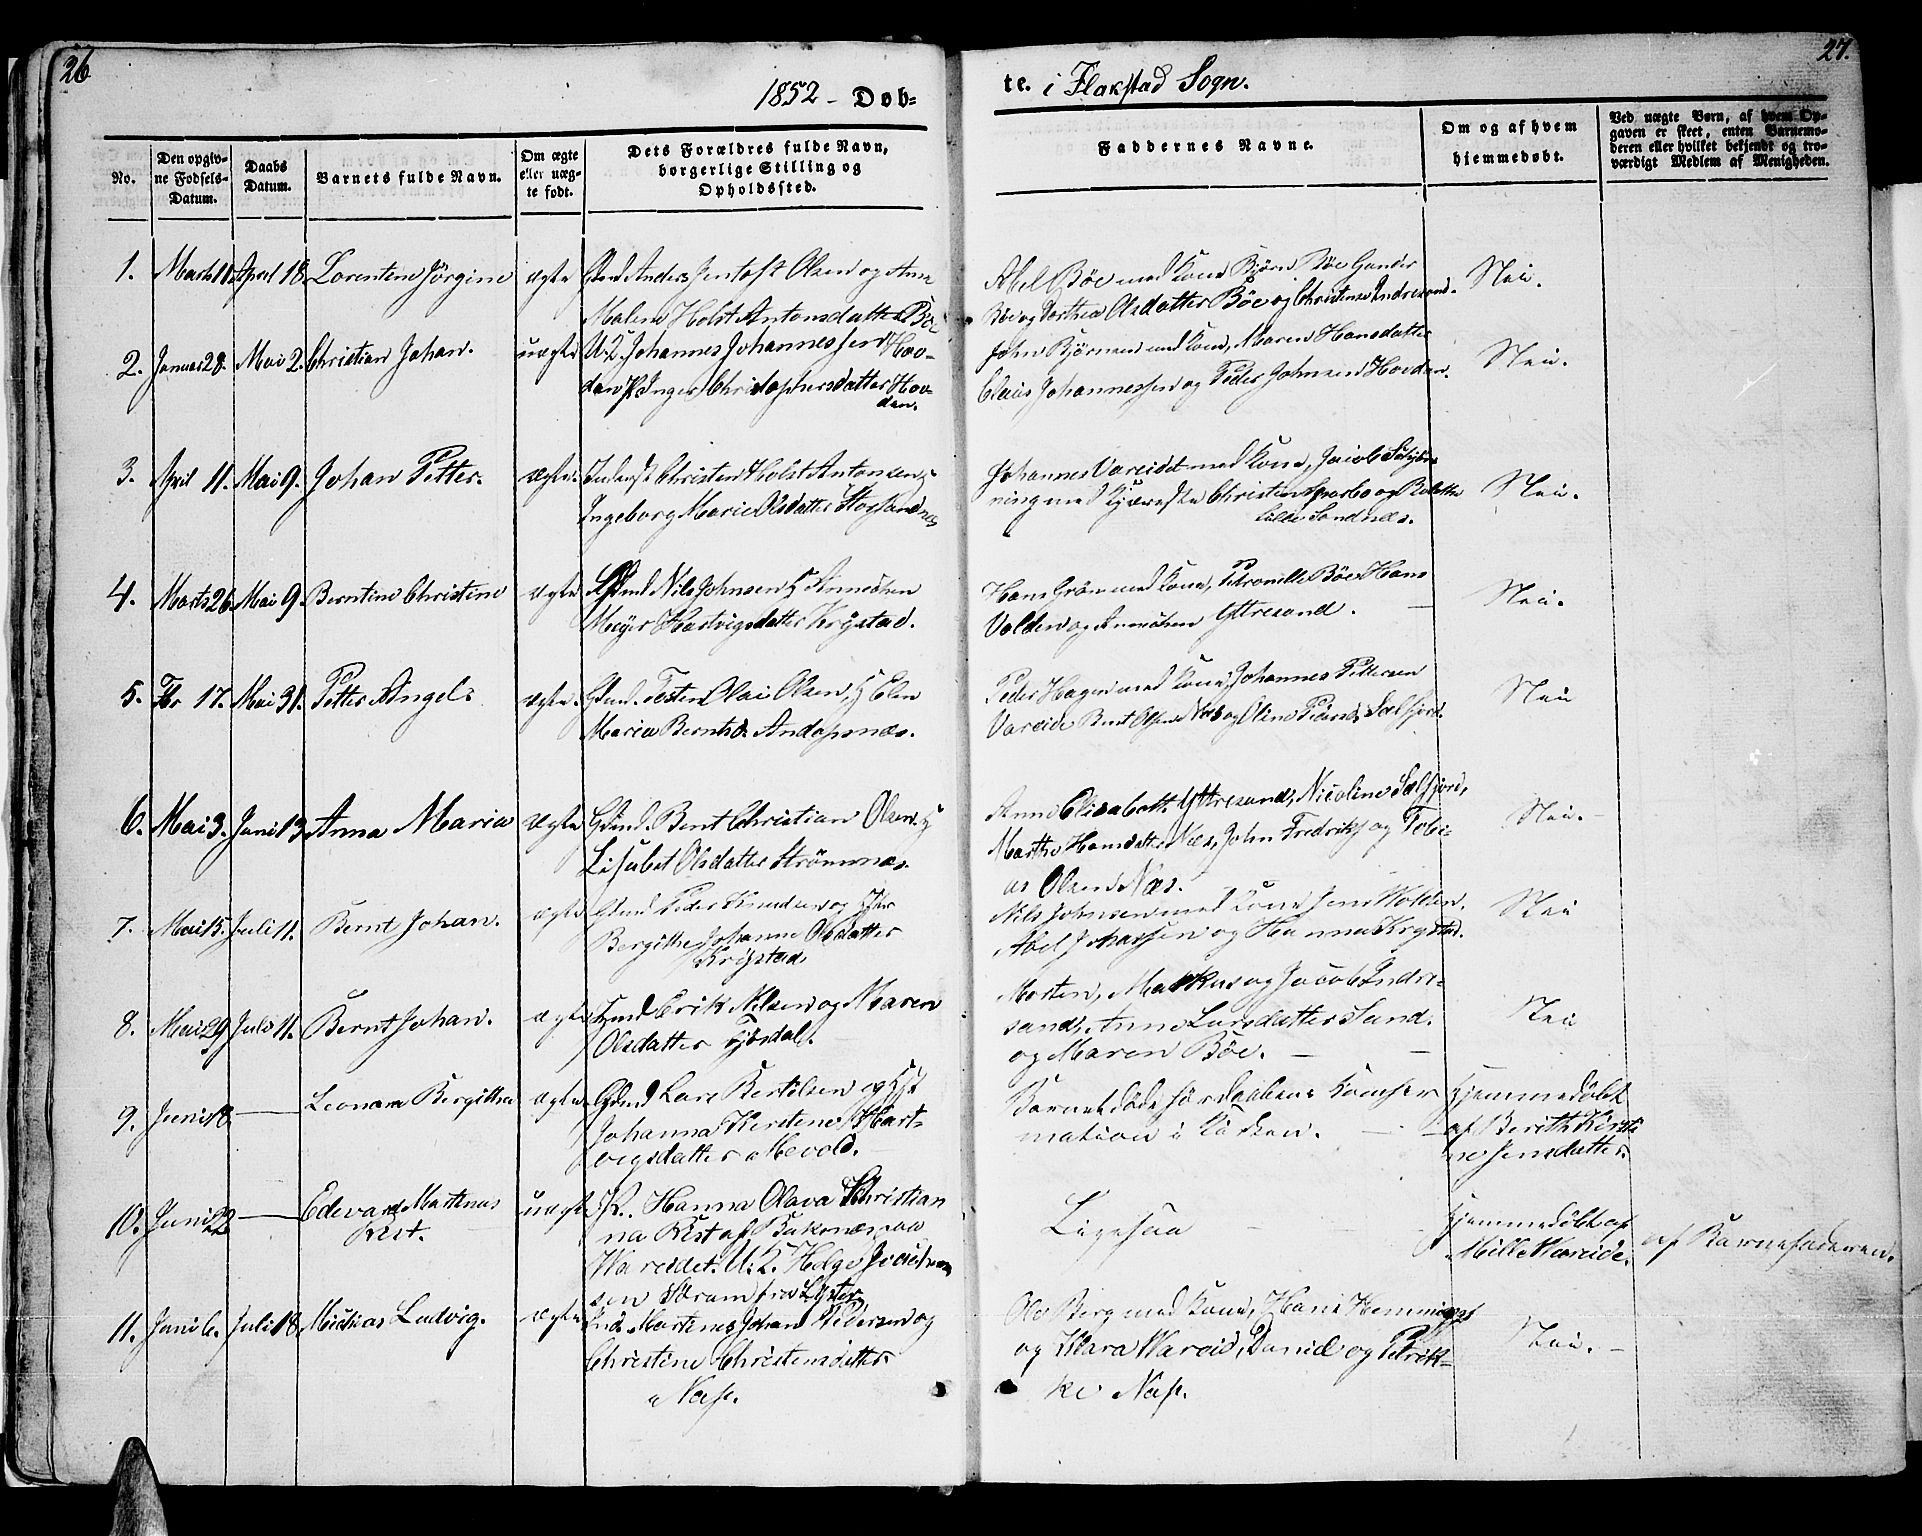 26
27.
1852 - Døb-
te. i Flakstad Sogn.
No.
Den opgiv-
ne Fødsels-
Datum.
Daabs
Datum.
Barnets fulde Navn.
Om ægte
eller uæg-
te født.
Dets Forældres fulde Navn,
borgerlige Stilling og
Opholdssted.
Faddernes Navne.
Om og af hvem
hjemmedøbt.
Ved uægte Børn, af hvem Op-
gaven er skeet, enten Barnemo-
deren eller hvilket bekjendt og tro-
værdigt Medlem af Menigheden.
1. Marts 11. April 18. Lorentine Jörgine ægte Gmd Anders Jentoft Olsen og Ane
Malene Holst Antonsdatter Böe
Abel Böe med Kone Björn Böe
Böe og Dorthea Olsdatter Böe og Christense Andresand.
Nei.
2. Januar 28. Mai 2. Christian Johan. uægte U. K. Johannes Johannessen Hov-
dan P. Inger Christophersdatter Hov-
dan.
John Björnsen med Kone, Maren Hansdatter
Claus Johannessen og Peder Johnsen Hovdan.
Nei.
3. April 11. Mai 9. Johan Petter. ægte. Christen Holst Antonsen &
Ingeborg Marie Olsdatter Storsandnæs
Johannes Vareidet med Kone, Jacob
ning med Kjæreste Christen og
Lille Sandnæs.
Nei.
4. Marts 26. Mai 9. Berntine Christine ægte Gmd Nils Johnsen & Annichen
Meyer Hartvigsdatter Krystad.
Hans Grön med Kone, Petronille Böe Hans
Volden og Annichen Yttresand.
Nei.
5. Fbr 17. Mai 31. Petter Angel. ægte. Gmd. Olai Olsen, & Elen
Maria Berntsd. Andopsnæs.
Peder Hagen med Kone, Johannes Pettersen
Vareide Bent Olsen Næs og Oline Selfjord.
Nei
6. Mai 3. Juni 13. Anna Maria ægte Gmd. Bent Christian Olsen &
Lisabet Olsdatter Strömnæs.
Anne Elisabeth Yttresand, Nicoline Selfjord,
Marthe Hansdatter Næs, John Fredriks og Tobi-
as Olsen Næs.
Nei.
7. Mai 15. Juli 11. Bernt Johan. ægte Gmd Peder Knudsen og
Bergitha Johanna Olsdatter
Krystad.
Nils Johnsen med Kone Jens Wolden.
Abel Johansen og Hanna Krystad.
Nei
8. Mai 29 Juli 11. Bernt Johan. ægte Gmd Erik Nilsen og Maren
Olsdatter
Morten, Markus og Jacob Indre-
sand, Anne Larsdatter Sand.
og Maren Böe.
Nei
9. Juni 18. — Leonara Bergitha ægte Gmd Lars Bertilsen og Hst
Johanna Kerstine Hart-
vigsdatter Mevold.
Barnet döde för Daabens Konfer
mation i Kirken.
Hjemmedöbt
af Berith Kirsti
ne Jensdatter.
10. Juni 22 — Edevard Martinus
Kest.
uægte P. Hanna Olava Christian
na Kest af Buksnæs paa
Wareidet. U. K. Helge
sen Strøm fra Lyster
Ligesaa
Hjemmedöbt af
Mille Wareide.
af Barnefaderen.
11. Juni 6. Juli 18. Michias Ludvig. ægte Martines Johan Pedersen og
Christine Christensdatter
Nap.
Ole Berg med Kone, Hans Hemmings
og Wara Wareid, Daniel og Petrik-
ke Nap.
Nei.